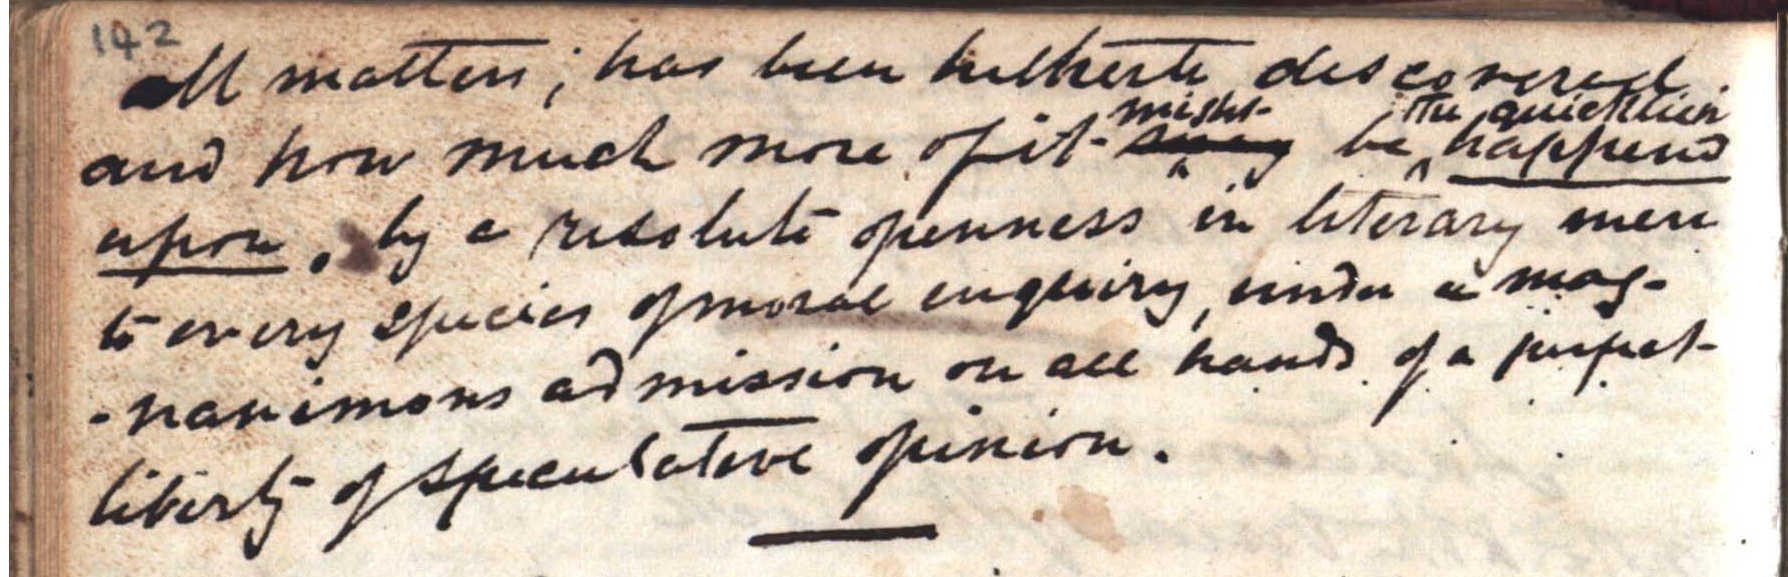 142
all matters; has been hitherto discovered
might the quicklier
and how much more of it may be happend
upon, by a resolute openness in literary men
to every species of moral enquiry, under a mag-
-nanimous admission on all hands of a perfect
liberty of speculative opinion.